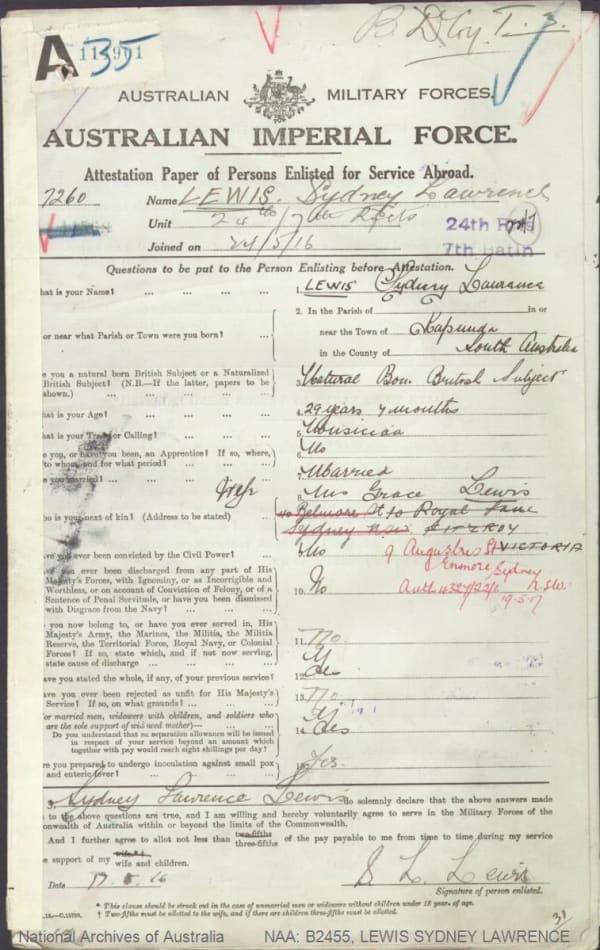 A35
B. D Coy. T.
AUSTRALIAN MILITARY FORCES.
AUSTRALIAN IMPERIAL FORCE.
Attestation Paper of Persons Enlisted for Service Abroad.
7260 Name LEWIS. Sydney Lawrence
Unit 24th/7th
24th
7th Battn
Joined on 24/5/16
Questions to be put to the Person Enlisting before Attestation.
hat is your Name? ... ... ... ... 1. LEWIS Sydney Lawrence
2. In the Parish of in or
or near what Parish or Town were you born? ... near the Town of Kapunda
in the County of South Australia
e you a natural born British Subject or a Naturalized
British Subject? (N.B.—If the latter, papers to be
shown.) Natural Born British Subject
hat is your Age? ... ... ... ... 4. 29 years 4 months
hat is your Trade or Calling? ... ... ... 5. Musician
e you, or have you been, an Apprentice? If so, where,
to whom, and for what period? ... ... 6. No
e you married? ... 7. Married
Wife 8. Mrs Grace Lewis
ho is your next of kin? (Address to be stated) ... 40 Belmore St 10 Royal Lane
Sydney NSW FITZROY
VICTORIA
ave you ever been convicted by the Civil Power? ... 9. No
9 Augustus St
Enmore Sydney
N.S.W.
19.5.17
ave you ever been discharged from any part of His
Majesty's Forces, with Ignominy, or as Incorrigible and
Worthless, or on account of Conviction of Felony, or of a
Sentence of Penal Servitude, or have you been dismissed
with Disgrace from the Navy? ... ... 10. No
you now belong to, or have you ever served in, His
Majesty's Army, the Marines, the Militia, the Militia
Reserve, the Territorial Force, Royal Navy, or Colonial
Forces? If so, state which, and if not now serving,
state cause of discharge ... ... ... 11. No
ave you stated the whole, if any, of your previous service? 12. Yes
ave you ever been rejected as unfit for His Majesty's
Service? If so, on what grounds? ... ... 13. No
or married men, widowers with children, and soldiers who
are the sole support of widowed mother)—
Do you understand that no separation allowance will be issued
in respect of your service beyond an amount which
together with pay would reach eight shillings per day? 14. Yes
re you prepared to undergo inoculation against small pox
and enteric fever? ... ... ... 15. Yes.
Sydney Lawrence Lewis do solemnly declare that the above answers made
to the above questions are true, and I am willing and hereby voluntarily agree to serve in the Military Forces of the
onwealth of Australia within or beyond the limits of the Commonwealth.
And I further agree to allot not less than two-fifths three-fifths of the pay payable to me from time to time during my service
e support of my wife wife and children.
Date 17.5.16 S. L. Lewis
Signature of person enlisted.
* This clause should be struck out in the case of unmarried men or widowers without children under 18 years of age.
† Two-fifths must be allotted to the wife, and if there are children three-fifths must be allotted.
National Archives of Australia NAA: B2455, LEWIS SYDNEY LAWRENCE